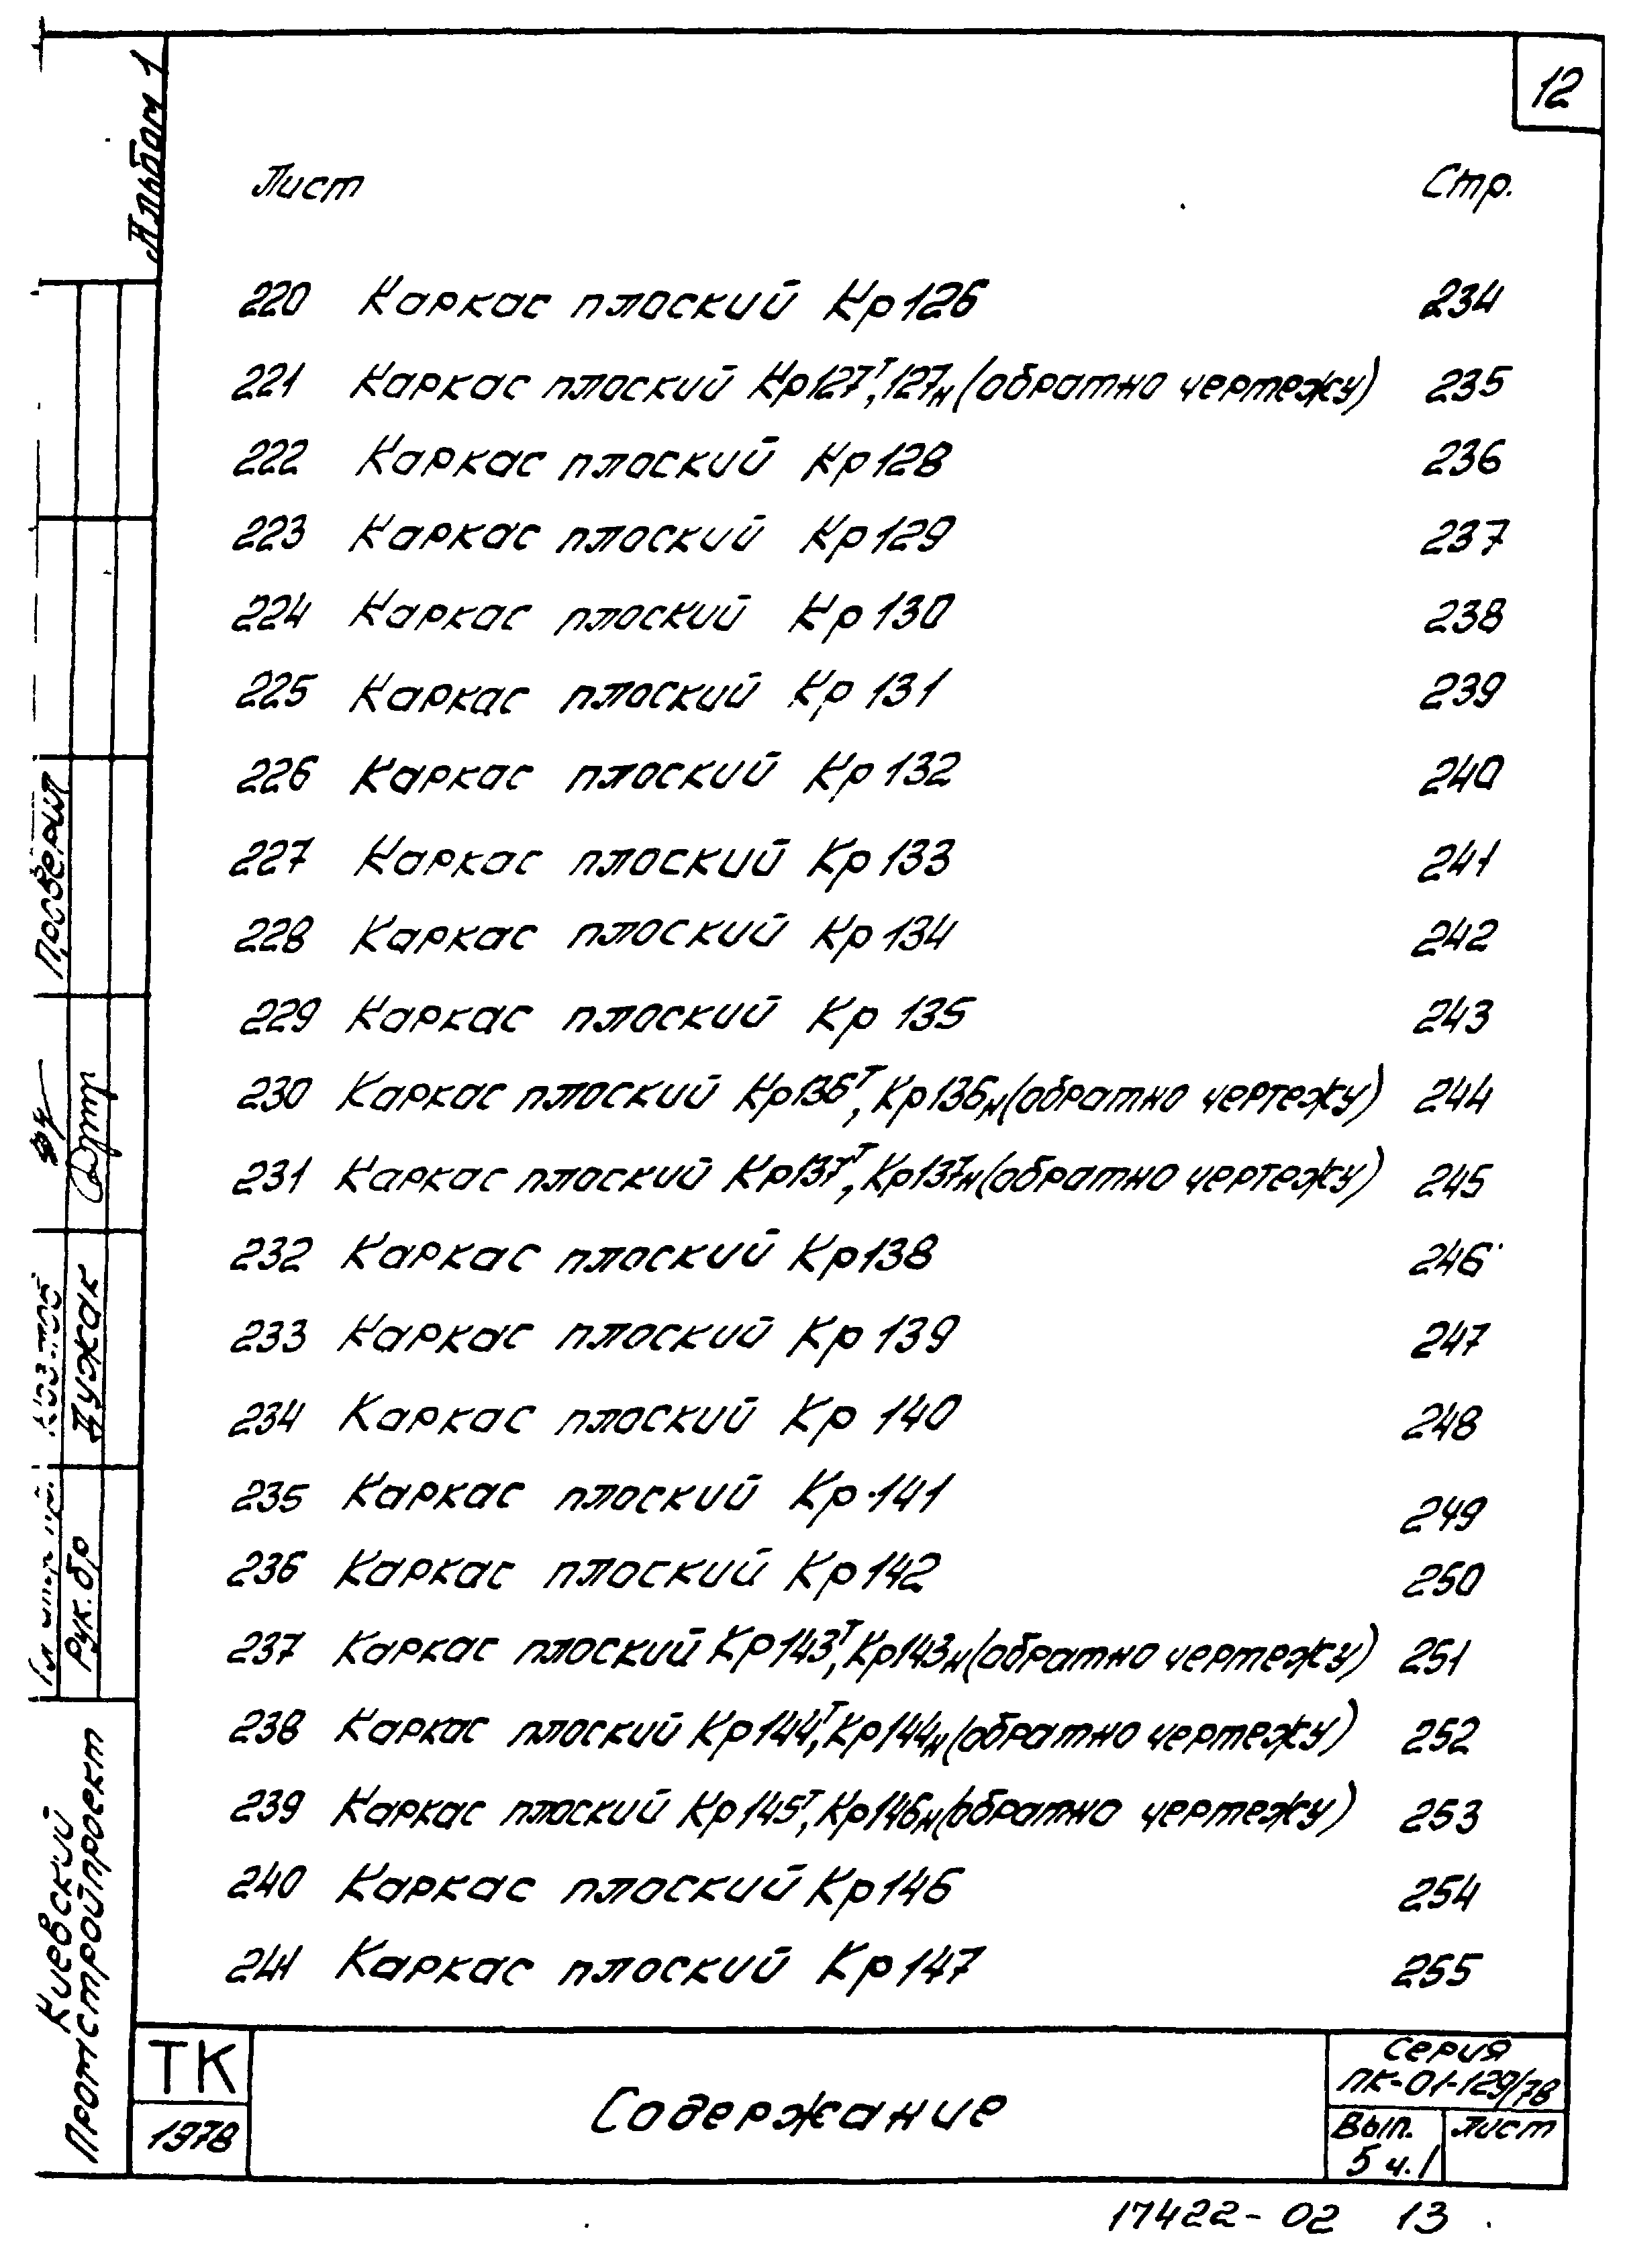 12
Альбом 1
Лист Стр.
220 Каркас плоский Кр126 234
221 Каркас плоский Кр127т, 127н (обратно чертежу) 235
222 Каркас плоский Кр128 236
223 Каркас плоский Кр129 237
224 Каркас плоский Кр130 238
225 Каркас плоский Кр131 239
226 Каркас плоский Кр132 240
227 Каркас плоский Кр133 241
228 Каркас плоский Кр134 242
229 Каркас плоский Кр135 243
230 Каркас плоский Кр136т, Кр136н (обратно чертежу) 244
231 Каркас плоский Кр137т, Кр137н (обратно чертежу) 245
232 Каркас плоский Кр138 246
233 Каркас плоский Кр139 247
234 Каркас плоский Кр140 248
235 Каркас плоский Кр141 249
236 Каркас плоский Кр142 250
237 Каркас плоский Кр143т, Кр143н (обратно чертежу) 251
238 Каркас плоский Кр144т, Кр144н (обратно чертежу) 252
239 Каркас плоский Кр145т, Кр146н (обратно чертежу) 253
240 Каркас плоский Кр146 254
241 Каркас плоский Кр147 255
Проверил
Рук. бр Дужак
Киевский
Промстройпроект
ТК
1978
Содержание
Серия
ПК-01-129/78
Вып. лист
5 ч.1
17422-02 13